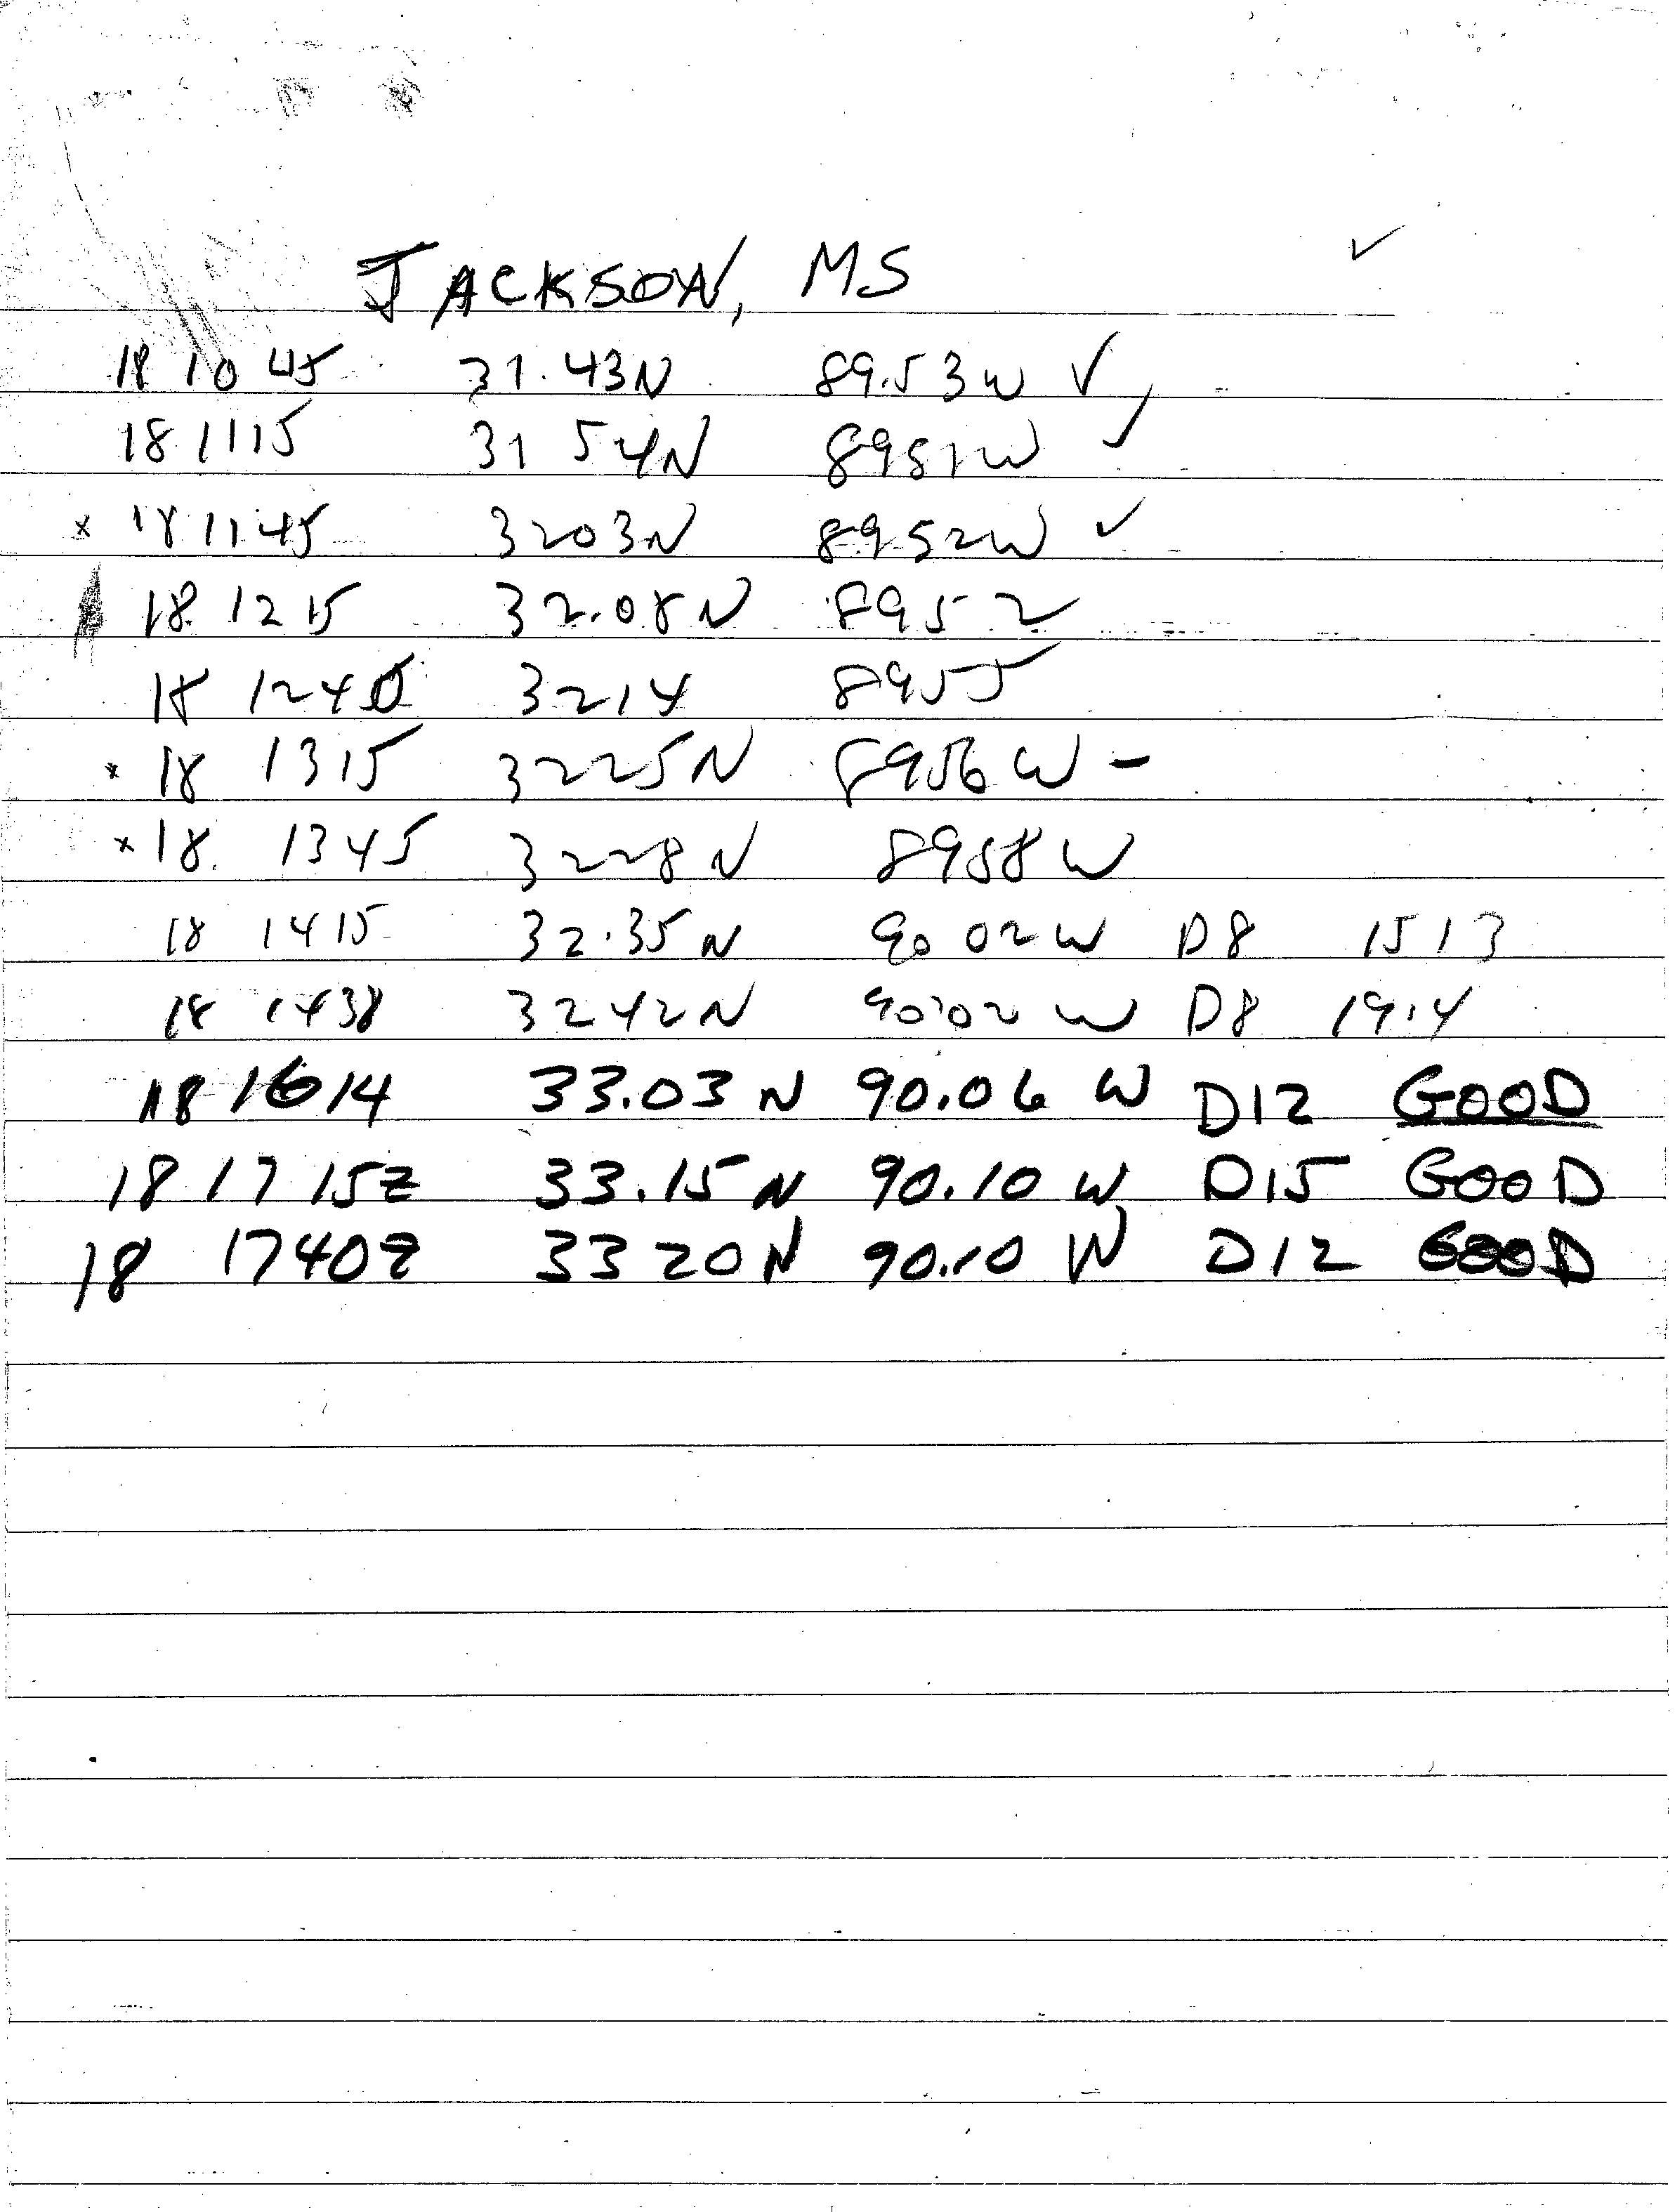 JACKSON, MS ✓
18 10 45 31.43N 89.53W ✓
18 1115 31 54N 8951W ✓
x 18 1145 3203N 8952W ✓
18. 1215 32.08N 8952
18 1240 3214 8955
x 18 1315 3225N 8956W -
x 18. 1345 3228N 8958W
18 1415 32.35N 90 02W D8 1513
18 1438 3242N 90 02W D8 19.4
18 1614 33.03N 90.06 W D12 GOOD
18 17 15Z 33.15N 90.10 W D15 GOOD
18 1740Z 33 20N 90.10 W D12 GOOD